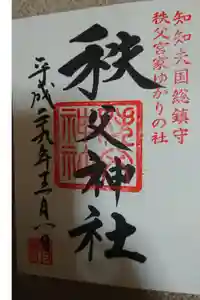 知知夫国総鎮守
秩父宮家ゆかりの社
秩父神社
平成二十九年十二月八日